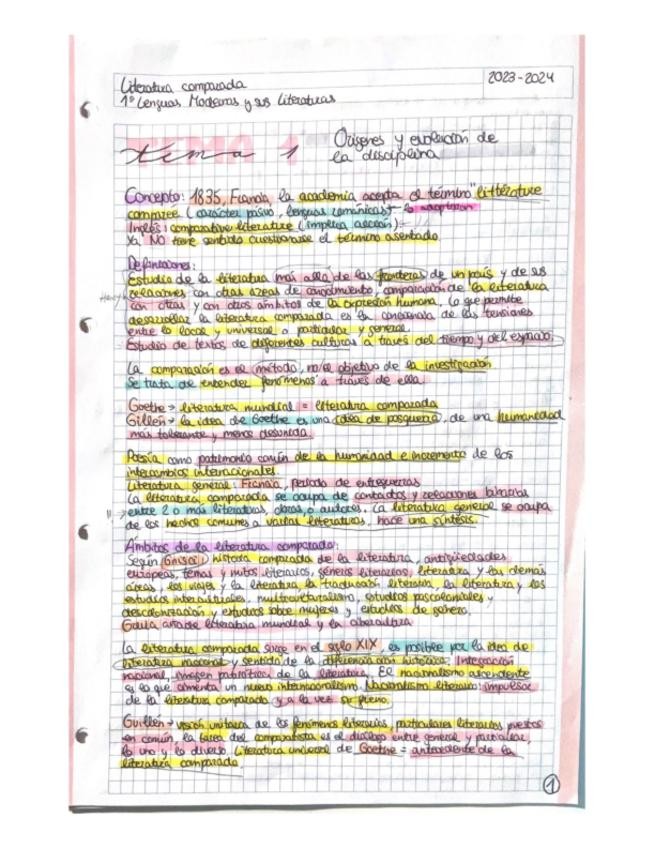 Literatura comparada
2023-2024
1º Lenguas Modernas y sus Literaturas
tema 1
Orígenes y evolución de
la disciplina
Concepto: 1835, Francia, la academia acepta el término "littérature
comparée (carácter pasivo, lenguas románicas)
Inglés: comparative literature (implica acción)
Ya NO tiene sentido cuestionarse el término asentado
Definiciones:
Estudio de la literatura más allá de las fronteras de un país y de sus
relaciones con otras áreas de conocimiento, comparación de la literatura
con otras y con otros ámbitos de la expresión humana. Lo que permite
desarrollar la literatura comparada es la conciencia de las tensiones
entre lo local y universal o particular y general.
Estudio de textos de diferentes culturas a través del tiempo y del espacio.
La comparación es el método, no el objetivo de la investigación
Se trata de entender fenómenos a través de ella
Goethe → literatura mundial = literatura comparada
Guillén → la idea de Goethe es una idea de posguerra, de una humanidad
más tolerante y menos desunida.
Poesía como patrimonio común de la humanidad e incremento de los
intercambios internacionales.
Literatura general: Francia, periodo de entreguerras
La literatura comparada se ocupa de contactos y relaciones binarias
entre 2 o más literaturas, obras o autores. La literatura general se ocupa
de los hechos comunes a varias literaturas, hace una síntesis.
Ámbitos de la literatura comparada:
Según Gnisci: historia comparada de la literatura, antigüedades
europeas, temas y mitos literarios, géneros literarios, literatura y las demás
áreas, los viajes y la literatura, la traducción literaria, la literatura y los
estudios interculturales, multiculturalismo, estudios poscoloniales y
descolonización y estudios sobre mujeres y estudios de género.
la literatura mundial y la cibercultura
La literatura comparada surge en el siglo XIX, es posible por la idea de
literatura nacional y sentido de la diferenciación histórica. Integración
nacional, imagen patriótica de la literatura. El nacionalismo ascendente
es lo que alimenta un nuevo internacionalismo. Nacionalismo literario: impulsor
de la literatura comparada y a la vez su freno.
Guillén → visión unitaria de los fenómenos literarios, particulares literarios puestos
en común, la tarea del comparatista es el diálogo entre general y particular,
lo uno y lo diverso. Literatura universal de Goethe = antecedente de la
literatura comparada
1